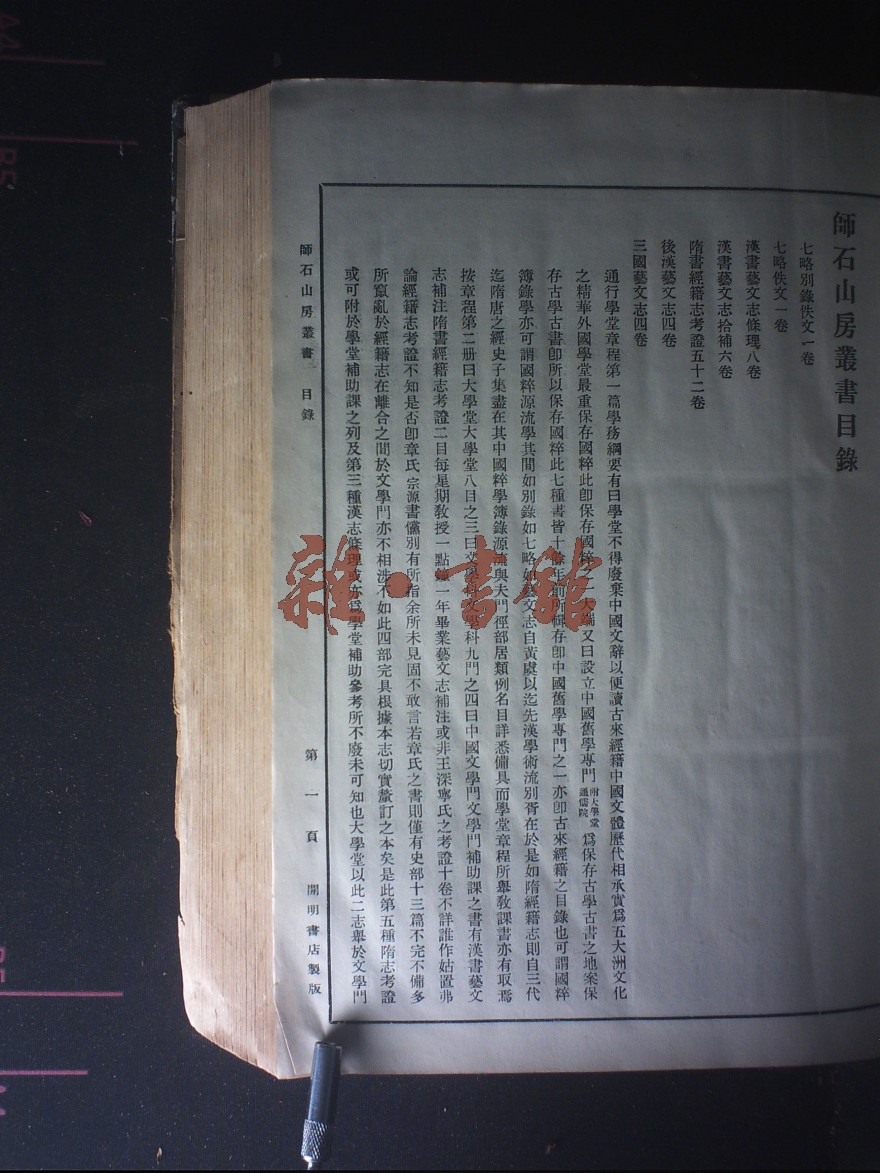 師石山房叢書目錄
七略別錄佚文一卷
七略佚文一卷
漢書藝文志條理八卷
漢書藝文志拾補六卷
隋書經籍志考證五十二卷
後漢藝文志四卷
三國藝文志四卷
通行學堂章程第一篇學務綱要有曰學堂不得廢棄中國文辭以便讀古來經籍中國文體歷代相承實爲五大洲文化
之精華外國學堂最重保存國粹此卽保存國粹之一大端又曰設立中國舊學專門附大學堂通儒院爲保存古學古書之地案保
存古學古書卽所以保存國粹此七種書皆十餘年前所 存卽中國舊學專門之一亦卽古來經籍之目錄也可謂國粹
簿錄學亦可謂國粹源流學其間如別錄如七略如藝文志自黃虞以迄先漢學術流別胥在於是如隋經籍志則自三代
迄隋唐之經史子集盡在其中國粹學簿錄源流與夫門徑部居類例名目詳悉備具而學堂章程所舉敎課書亦有取焉
按章程第二册曰大學堂大學堂八目之三曰文學科文學科九門之四曰中國文學門文學門補助課之書有漢書藝文
志補注隋書經籍志考證二目每星期敎授一點鐘一年畢業藝文志補注或非王深寧氏之考證十卷不詳誰作姑置弗
論經籍志考證不知是否卽章氏宗源書儻別有所指余所未見固不敢言若章氏之書則僅有史部十三篇不完不備多
所竄亂於經籍志在離合之間於文學門亦不相涉不如此四部完具根據本志切實釐訂之本矣是此第五種隋志考證
或可附於學堂補助課之列及第三種漢志條理或亦爲學堂補助參考所不廢未可知也大學堂以此二志舉於文學門
師石山房叢書 目錄 第一頁 開明書店製版
雜·書館